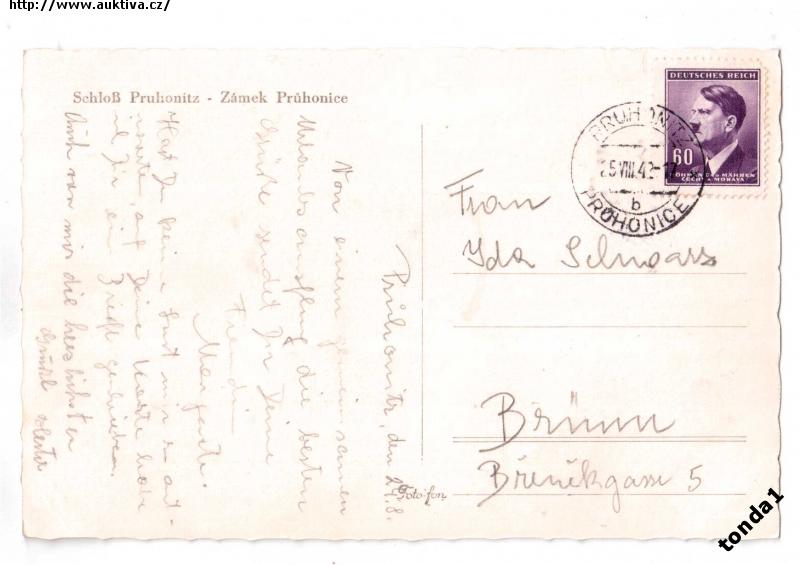 http://www.auktiva.cz/
Schloß Pruhonitz - Zámek Průhonice
DEUTSCHES REICH
60
BÖHMEN u. MÄHREN
ČECHY a MORAVA
PRUHONITZ
25.VIII.42-17
b
PRŮHONICE
Frau
Ida Schwarz
Brünn
Břeněkgasse 5
Průhonitz, den 24.8.
Von einem gemeinsamen
Urlaubsausflug die besten
Grüße sendet Dir Deine
Freundin
Margarete.
Hast Du keine Lust mir zu ant-
worte, auf Deine Karte habe
ich Dir ein Brief geschrieben.
Auch von mir die herzlichsten
Grüße
Foto-fon
tonda1